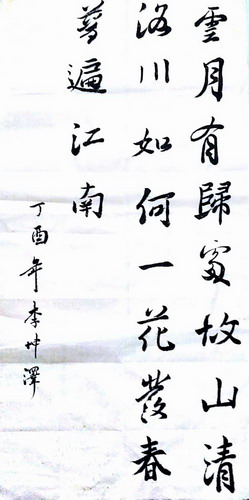 雲月有歸處故山清
洛川如何一花發春
普遍江南
丁酉年李坤澤